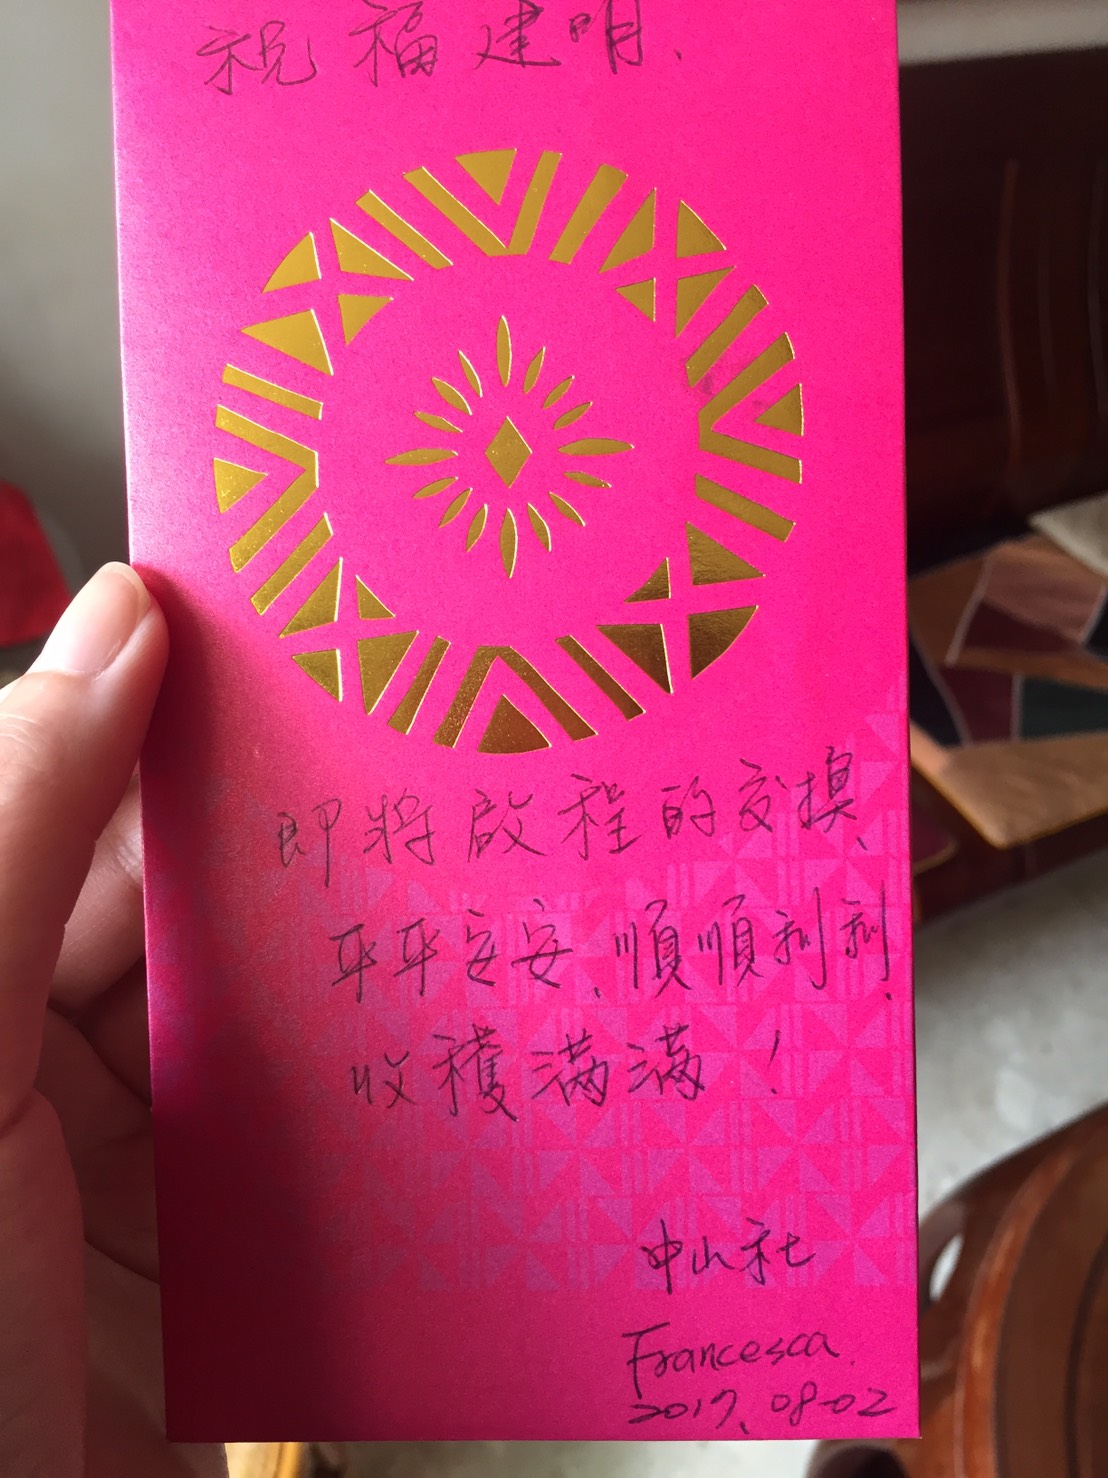 祝福建明、
即將啟程的交換、
平平安安、順順利利、
收穫滿滿！
中山社
Francesca.
2017.08-02